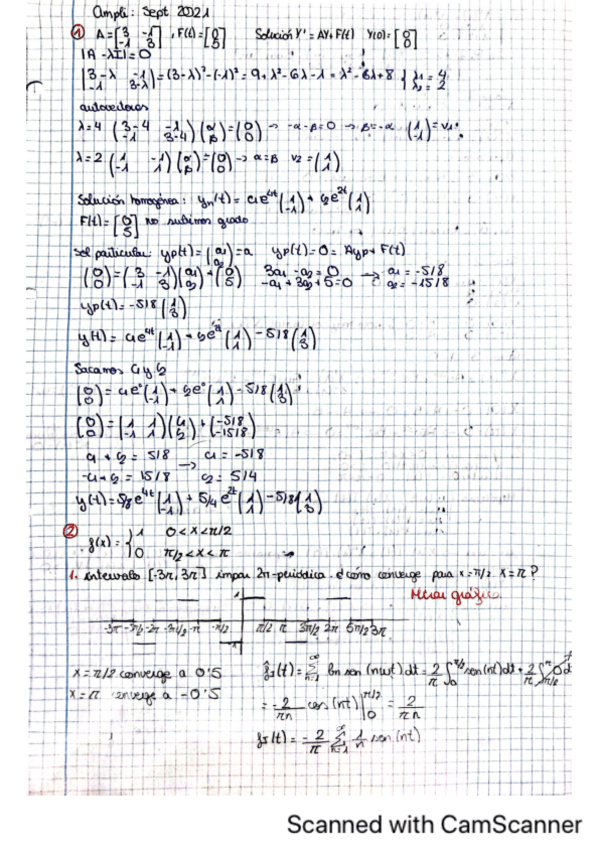 Ampli: Sept 2021
① A = [3 -1; -1 3], F(t) = [0; 5] Solución Y' = AY + F(t) Y(0) = [0; 0]
|A - λI| = 0
|3-λ -1; -1 3-λ| = (3-λ)² - (-1)² = 9 + λ² - 6λ - 1 = λ² - 6λ + 8 { λ₁ = 4 λ₂ = 2
autovectores
λ=4 (3-4 -1; -1 3-4) (α; β) = (0; 0) → -α-β=0 → β=-α (1; -1) = v₁
λ=2 (1 -1; -1 1) (α; β) = (0; 0) → α=β v₂ = (1; 1)
Solución homogénea: yh(t) = c₁e^4t (1; -1) + c₂e^2t (1; 1)
F(t) = [0; 5] no subimos grado
Sol particular: yp(t) = (a₁; a₂) = a yp'(t) = 0 = Ayp + F(t)
(0; 0) = (3 -1; -1 3) (a₁; a₂) + (0; 5) 3a₁ - a₂ = 0 -a₁ + 3a₂ + 5 = 0 → a₁ = -5/8 a₂ = -15/8
yp(t) = -5/8 (1; 3)
y(t) = c₁e^4t (1; -1) + c₂e^2t (1; 1) - 5/8 (1; 3)
Sacamos c₁ y c₂
(0; 0) = c₁e⁰ (1; -1) + c₂e⁰ (1; 1) - 5/8 (1; 3)
(0; 0) = (1 1; -1 1) (c₁; c₂) + (-5/8; -15/8)
c₁ + c₂ = 5/8 → c₁ = -5/8
-c₁ + c₂ = 15/8 c₂ = 5/4
y(t) = 5/8 e^4t (1; -1) + 5/4 e^2t (1; 1) - 5/8 (1; 3)
② f(x) = { 1 0 < x < π/2
0 π/2 < x < π
1. intervalo [-3π, 3π] impar 2π-periódica. ¿cómo converge para x = π/2 x = π?
Mirar gráfica
1
-3π -2π -π -π/2 π/2 π 3π/2 2π 5π/2 3π
x = π/2 converge a 0'5
x = π converge a -0'5
fs(t) = Σ n=1 ∞ bn sen(nωt) dt = 2/π ∫₀^π/2 sen(nt) dt + 2/π ∫π/2^π 0 d
= -2/πn cos(nt) |₀^π/2 = 2/πn
fs(t) = -2/π Σ n=1 ∞ 1/n sen(nt)
Scanned with CamScanner